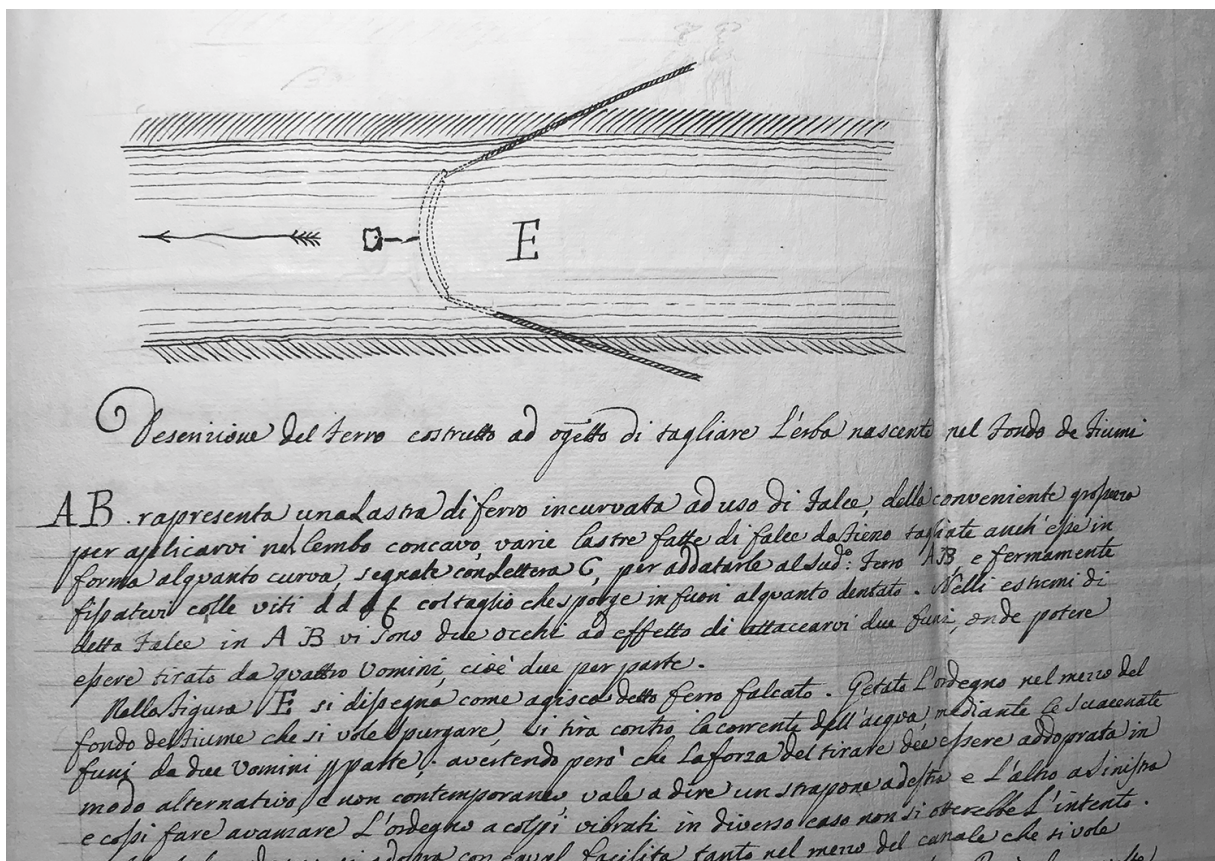 E
Descrizione del ferro costrutto ad ogetto di tagliare l'erba nascente nel fondo de fiumi
AB. rapresenta una Lastra di ferro incurvata ad uso di Falce, della conveniente grossezza
per applicarvi nel lembo concavo, varie lastre fatte di falce da fieno tagliate anch'esse in
forma alquanto curva, segnate con Lettera C, per addatarle al Sudº: ferro AB, e fermamente
fissatevi colle viti d d d col taglio che sporge in fuori alquanto dentato. Nelli estremi di
detta Falce in A B vi sono due occhi ad effetto di attaccarvi due funi, onde potere
essere tirato da quattro Uomini, cioè due per parte.
Nella figura E si dissegna come agisca detto ferro falcato. Getato L'ordegno nel mezzo del
fondo del fiume che si vole spurgare, si tira contro la corrente dell'acqua, mediante le
funi da due Uomini parte: avertendo però che La forza del tirare dee essere addoprata in
modo alternativo, e non contemporaneo vale a dire un strapone a destra e L'altro a Sinistra
e cossi fare avanzare L'ordegno a colpi vibrati in diverso caso non si otterebbe L'intento.
si adopra con egual facilita tanto nel mezzo del canale che si vole